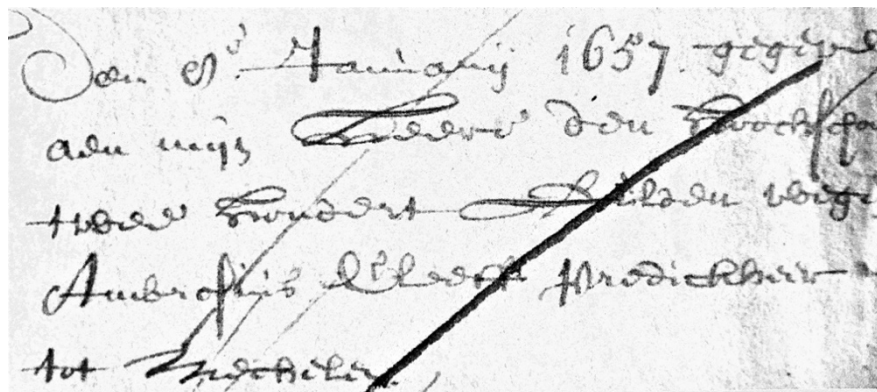 Den 8e Januarij 1657 gegeven
aen mijn Heere den
twee hondert Gulden
Ambrosius Predickheer
tot Mechelen